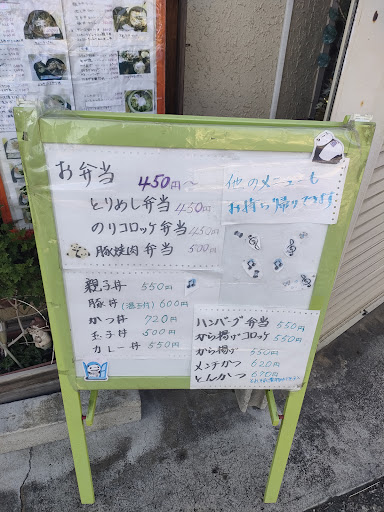 お弁当 450円〜
とりめし弁当 450円
のりコロッケ弁当 450
豚焼肉弁当 500円
他のメニューも
お持ち帰りできます
親子丼 550円
豚丼 600円
かつ丼 720円
玉子丼 500円
カレー丼 550円
ハンバーグ弁当 550円
から揚げ・コロッケ 550円
から揚げ 550円
メンチかつ 620円
とんかつ 670円